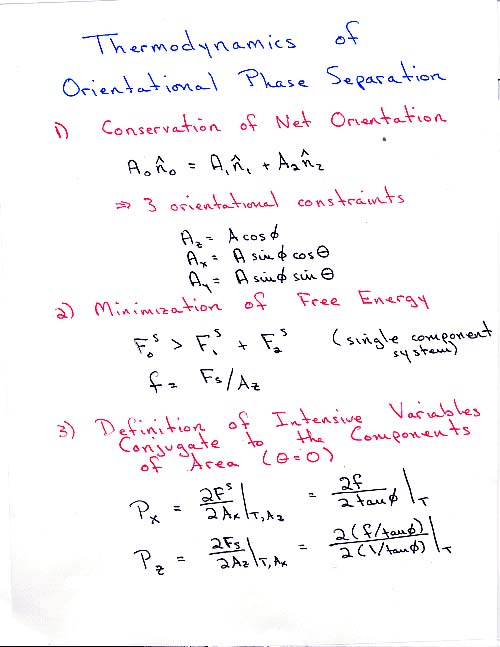 Thermodynamics of
Orientational Phase Separation
1) Conservation of Net Orientation
A₀n̂₀ = A₁n̂₁ + A₂n̂₂
⇒ 3 orientational constraints
A_z = A cos φ
A_x = A sin φ cos θ
A_y = A sin φ sin θ
2) Minimization of Free Energy
F₀ˢ > F₁ˢ + F₂ˢ (single component system)
f = Fs/A_z
3) Definition of Intensive Variables
Conjugate to the Components
of Area (θ=0)
P_x = ∂Fˢ/∂A_x |T,A_z = ∂f/∂tanφ |T
P_z = ∂Fs/∂A_z |T,A_x = ∂(f/tanφ)/∂(1/tanφ) |T